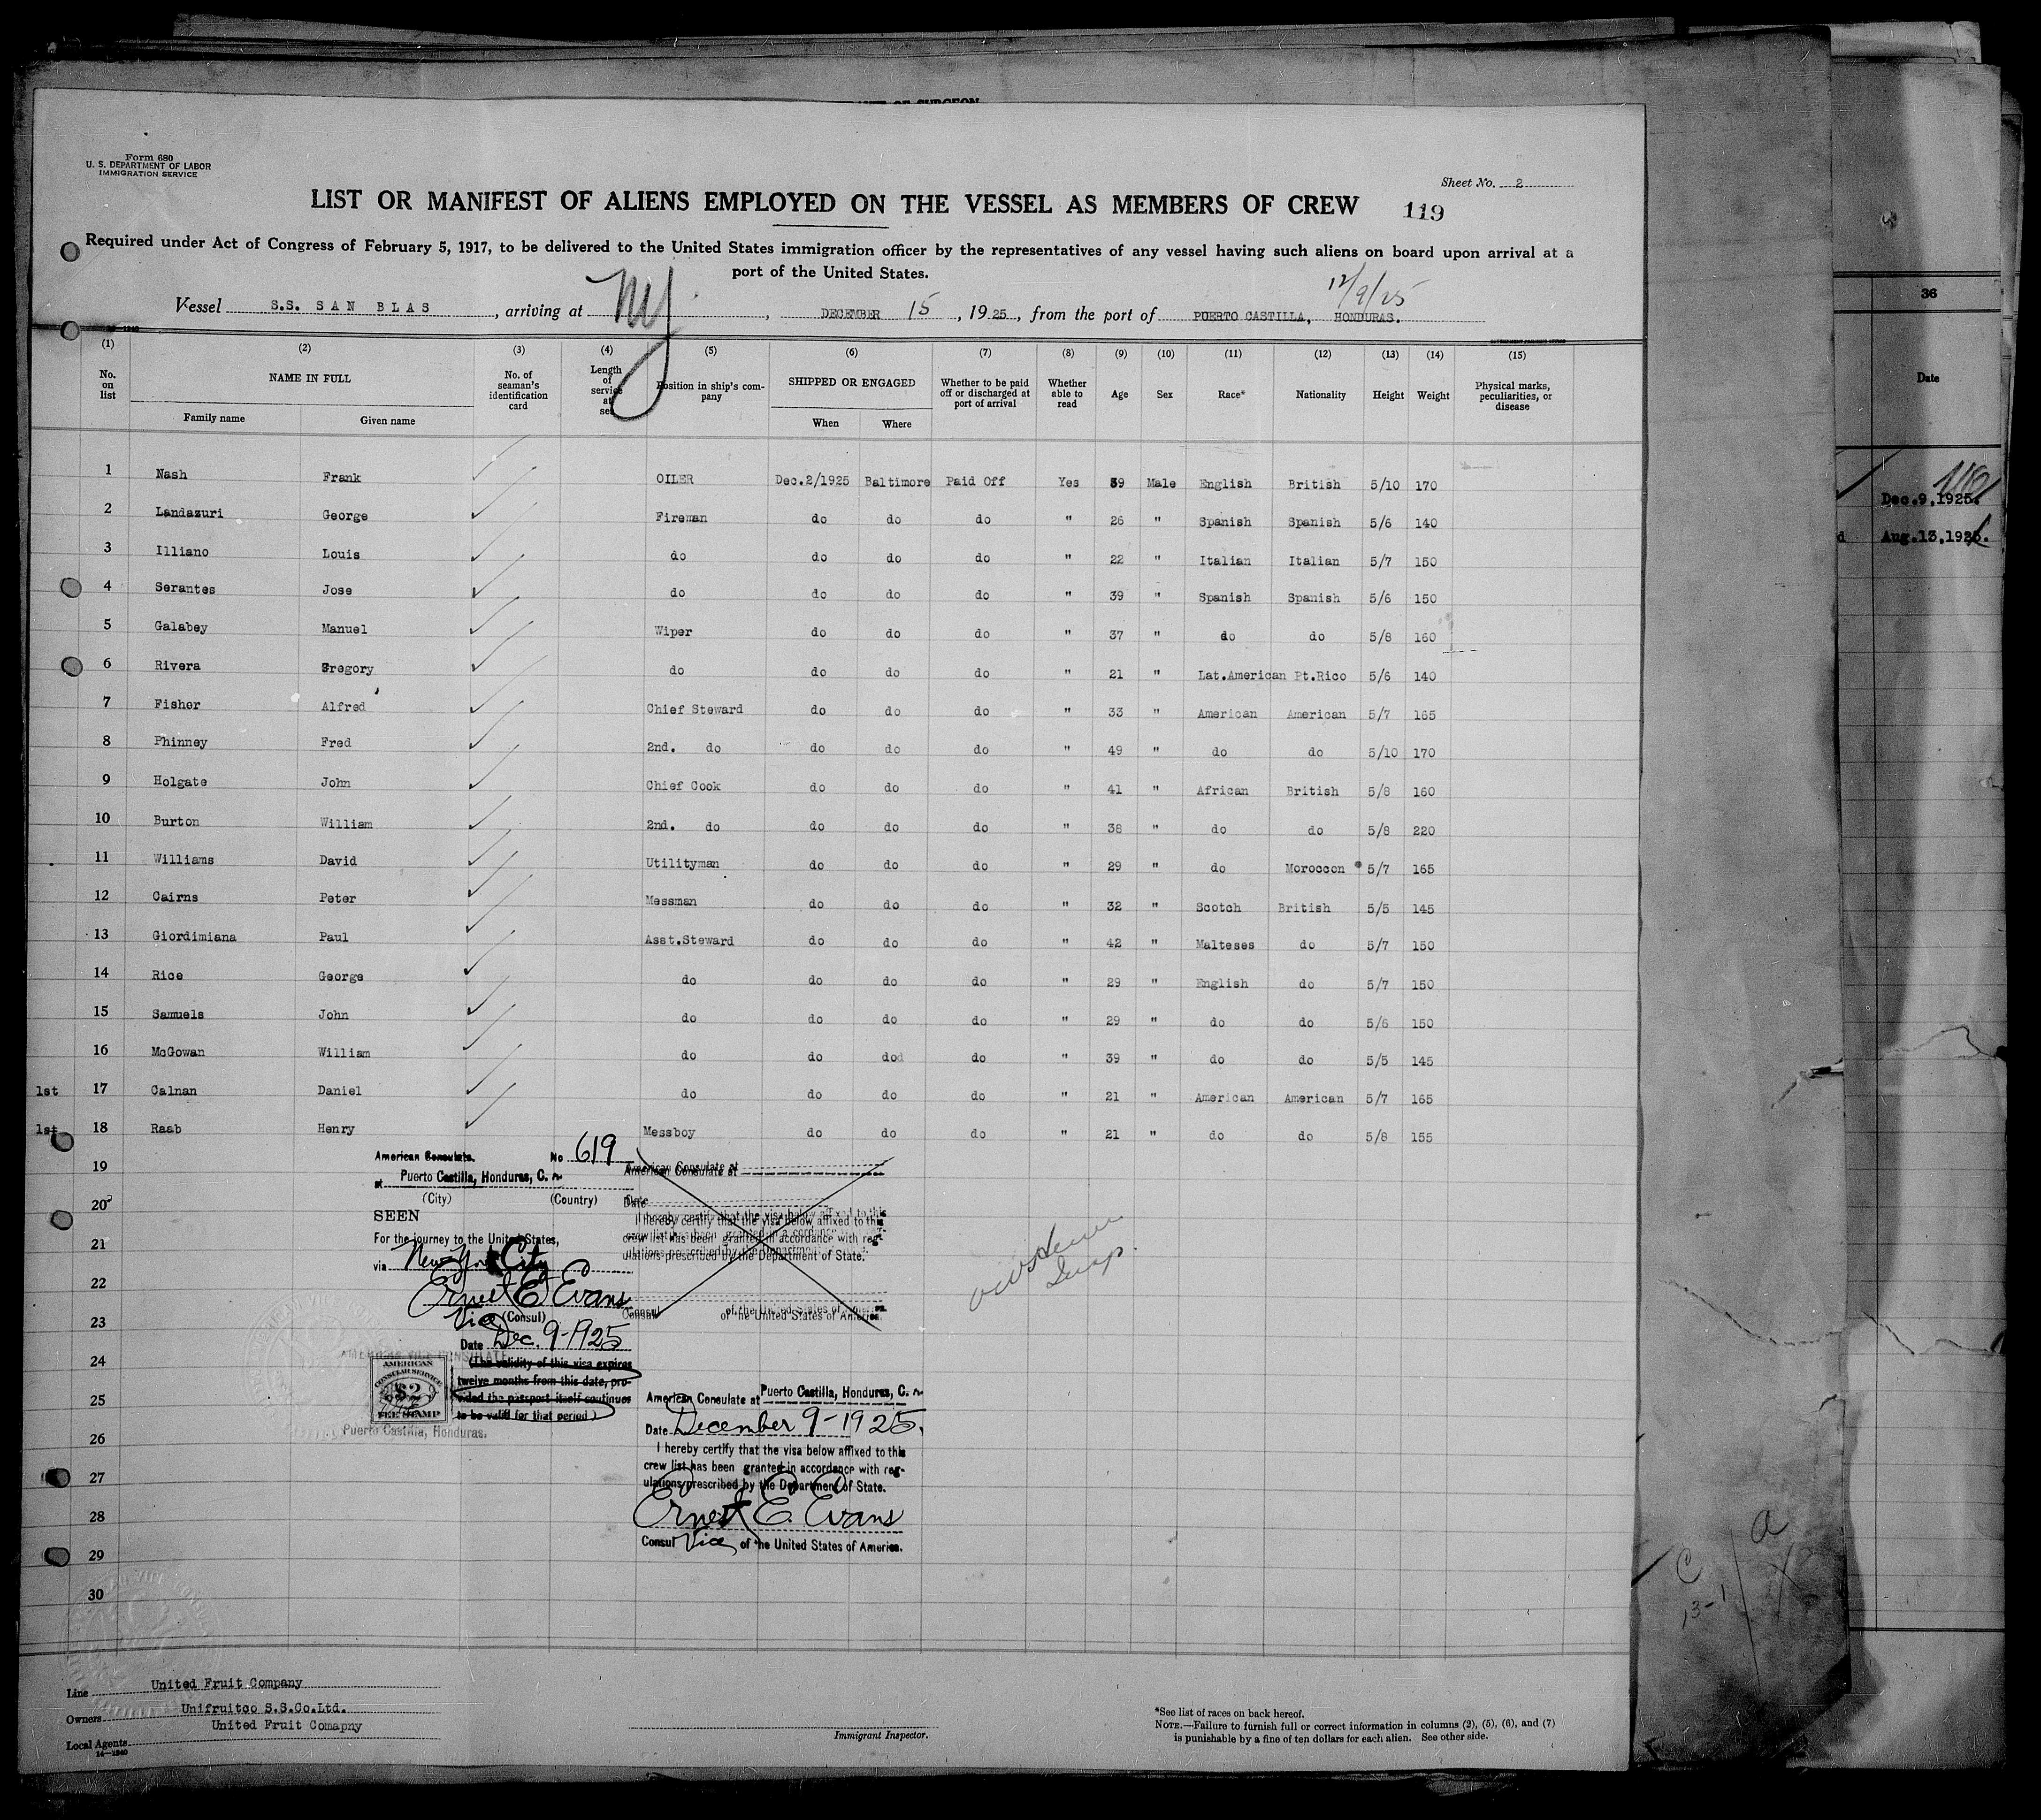 OF SURGEON
Form 680
U. S. DEPARTMENT OF LABOR
IMMIGRATION SERVICE
Sheet No. 2
LIST OR MANIFEST OF ALIENS EMPLOYED ON THE VESSEL AS MEMBERS OF CREW 119
Required under Act of Congress of February 5, 1917, to be delivered to the United States immigration officer by the representatives of any vessel having such aliens on board upon arrival at a
port of the United States.
12/9/25
Vessel S.S. SAN BLAS, arriving at NY, DECEMBER 15, 1925, from the port of PUERTO CASTILLA, HONDURAS.
(1) (2) (3) (4) (5) (6) (7) (8) (9) (10) (11) (12) (13) (14) (15)
No. on list NAME IN FULL Family name Given name No. of seaman's identification card Length of service at sea Position in ship's company SHIPPED OR ENGAGED When Where Whether to be paid off or discharged at port of arrival Whether able to read Age Sex Race* Nationality Height Weight Physical marks, peculiarities, or disease
1 Nash Frank OILER Dec.2/1925 Baltimore Paid Off Yes 39 Male English British 5/10 170
2 Landazuri George Fireman do do do " 26 " Spanish Spanish 5/6 140
3 Illiano Louis do do do do " 22 " Italian Italian 5/7 150
4 Serantes Jose do do do do " 39 " Spanish Spanish 5/6 150
5 Galabey Manuel Wiper do do do " 37 " do do 5/8 160
6 Rivera Gregory do do do do " 21 " Lat.American Pt.Rico 5/6 140
7 Fisher Alfred Chief Steward do do do " 33 " American American 5/7 165
8 Phinney Fred 2nd. do do do do " 49 " do do 5/10 170
9 Holgate John Chief Cook do do do " 41 " African British 5/8 160
10 Burton William 2nd. do do do do " 38 " do do 5/8 220
11 Williams David Utilityman do do do " 29 " do Moroccon 5/7 165
12 Cairns Peter Messman do do do " 32 " Scotch British 5/5 145
13 Giordimiana Paul Asst.Steward do do do " 42 " Malteses do 5/7 150
14 Rice George do do do do " 29 " English do 5/7 150
15 Samuels John do do do do " 29 " do do 5/6 150
16 McGowan William do do dod do " 39 " do do 5/5 145
1st 17 Calnan Daniel do do do do " 21 " American American 5/7 165
1st 18 Raab Henry Messboy do do do " 21 " do do 5/8 155
19
20
21
22
23
24
25
26
27
28
29
30
American Consulate. No 619
at Puerto Castilla, Honduras, C. A.
(City) (Country)
SEEN
For the journey to the United States,
via New York City
Ernest E Evans
Vice (Consul)
Date Dec. 9-1925
(The validity of this visa expires
twelve months from this date, pro-
vided the passport itself continues
to be valid for that period)
AMERICAN VICE CONSULATE
AMERICAN
CONSULAR SERVICE
$2
FEE STAMP
Puerto Castilla, Honduras.
American Consulate at
Date
I hereby certify that the visa below affixed to this
crew list has been granted in accordance with reg-
ulations prescribed by the Department of State.
Consul of the United States of America.
American Consulate at Puerto Castilla, Honduras, C. A.
Date December 9-1925.
I hereby certify that the visa below affixed to this
crew list has been granted in accordance with reg-
ulations prescribed by the Department of State.
Ernest E. Evans
Consul Vice of the United States of America.
Line United Fruit Company
Owners Unifruitco S.S.Co.Ltd.
Local Agents United Fruit Comapny
14—1240
Immigrant Inspector.
*See list of races on back hereof.
NOTE.—Failure to furnish full or correct information in columns (2), (5), (6), and (7)
is punishable by a fine of ten dollars for each alien. See other side.
36
Date
Dec.9,1925.
d Aug.13,1925.